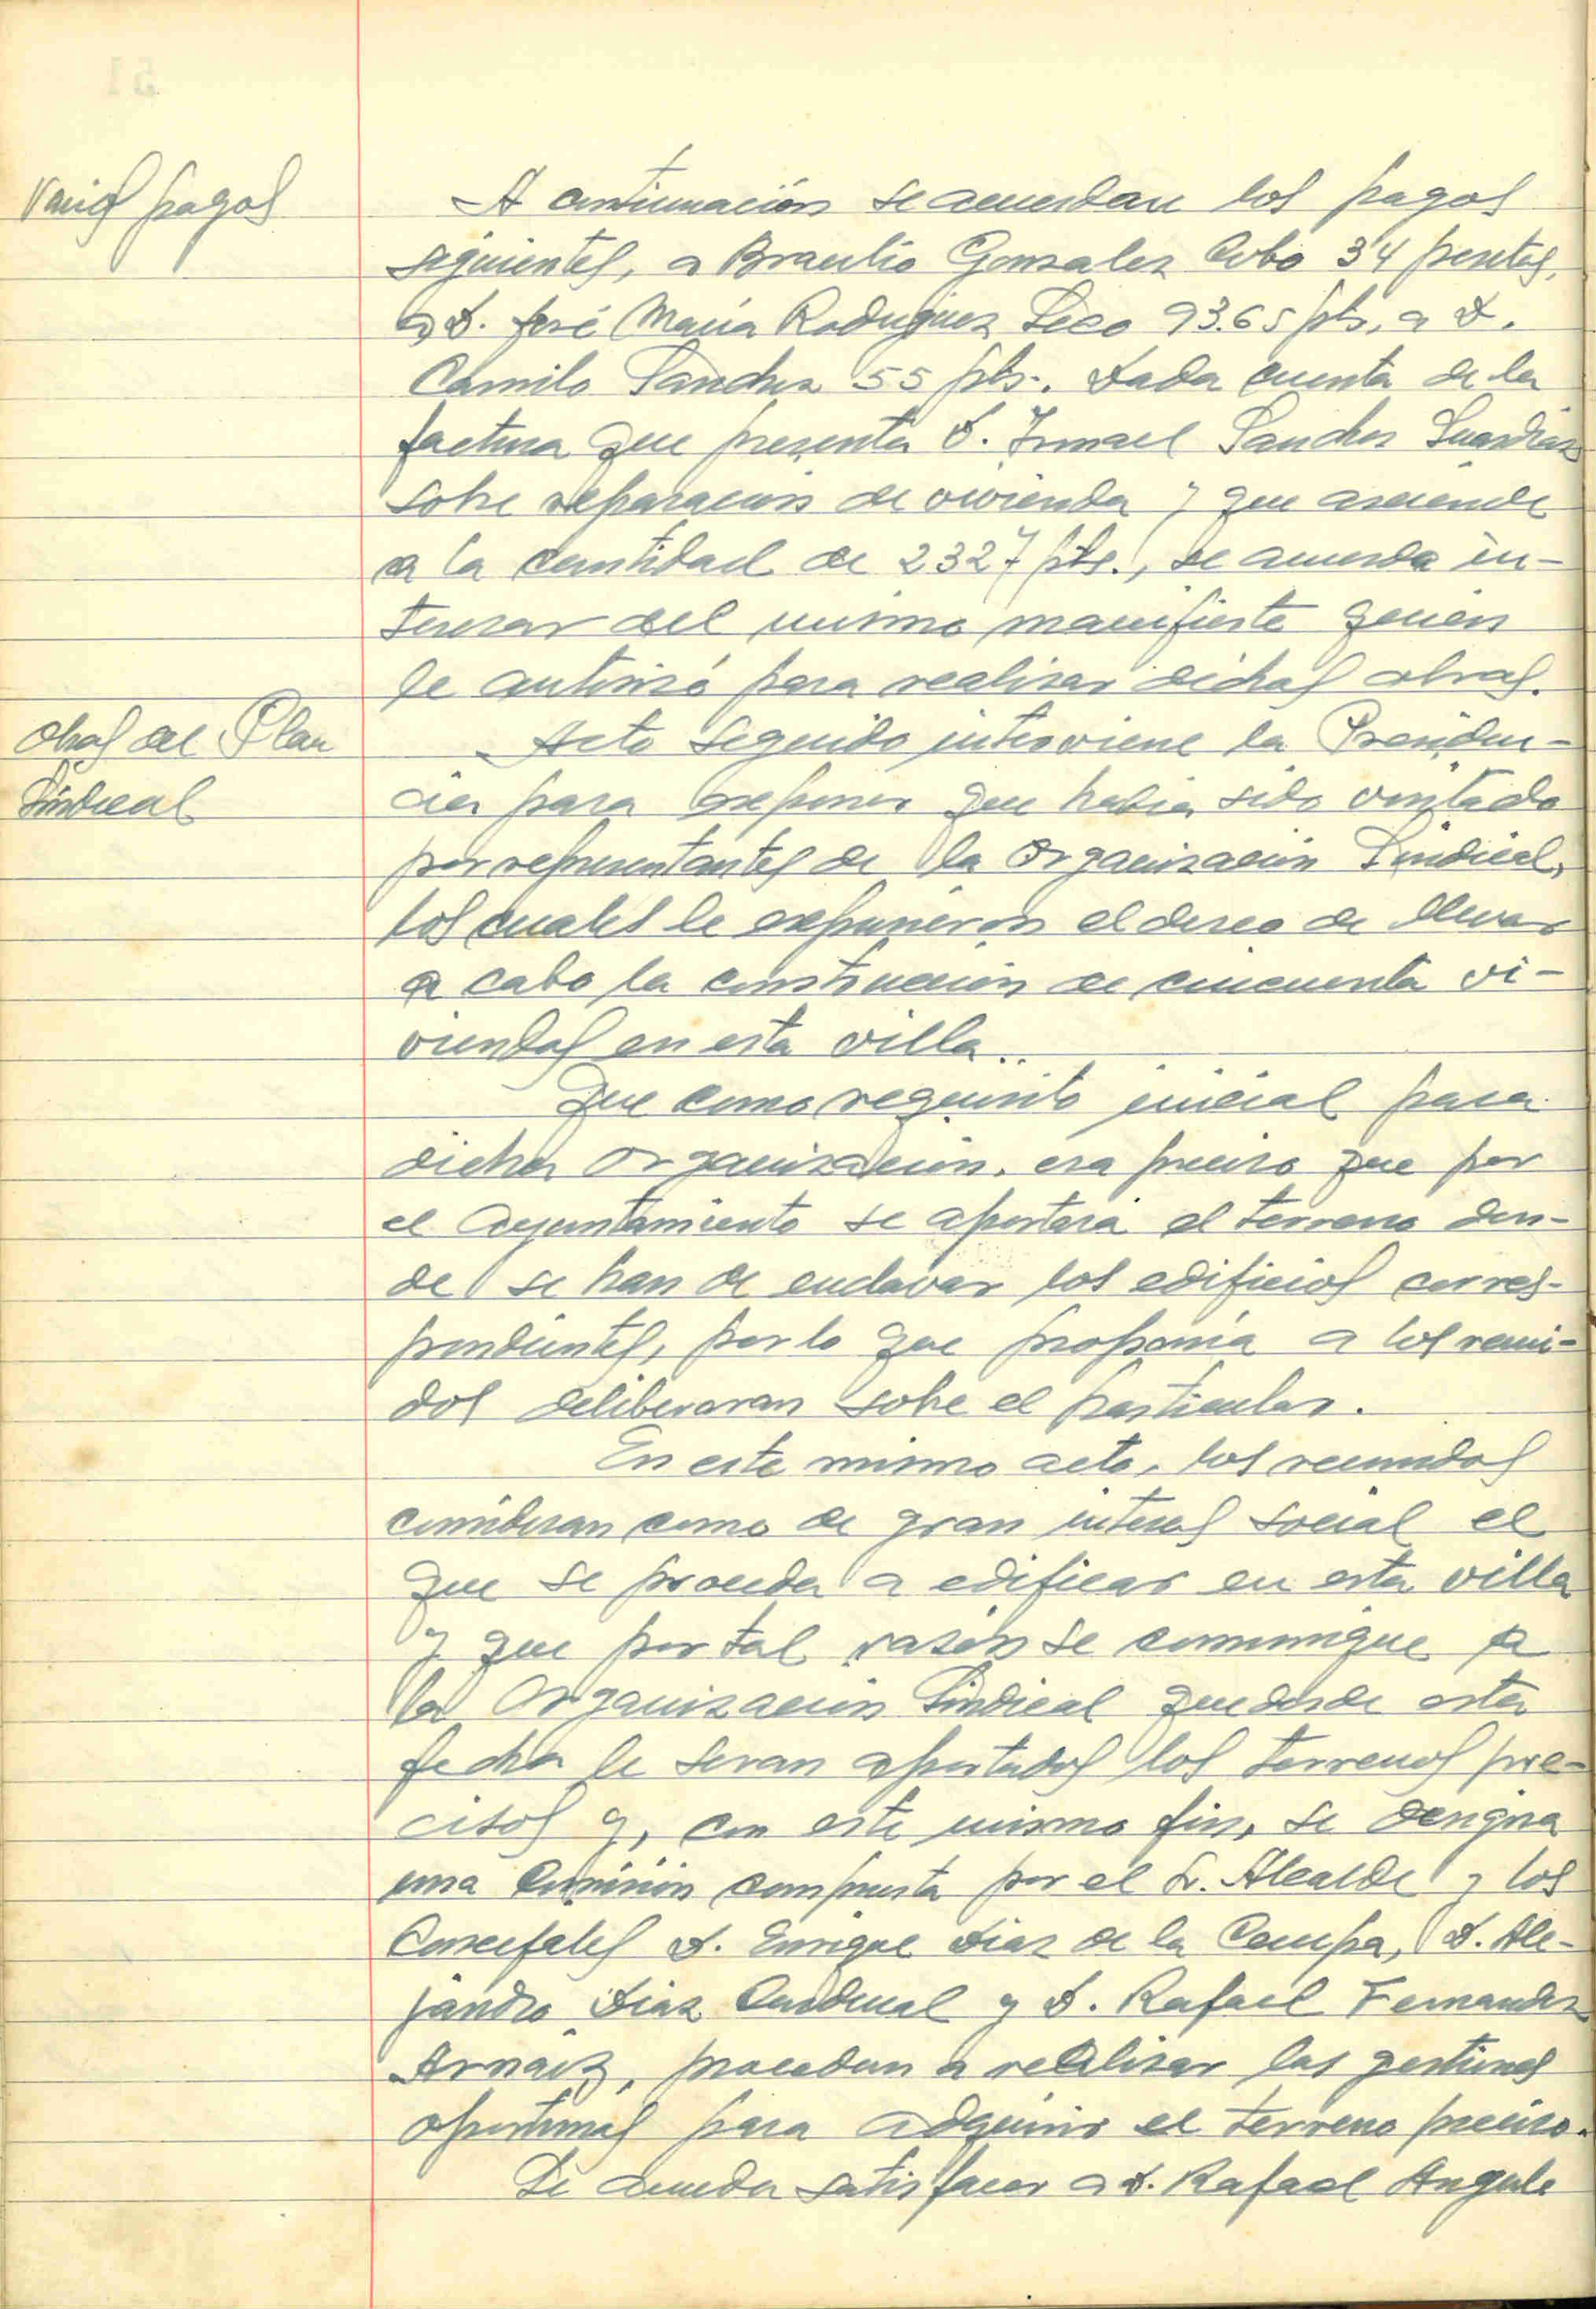 Varios pagos
A continuación se acuerdan los pagos
siguientes, a Braulio Gonzalez Cobo 34 pesetas,
a D. José María Rodriguez Seco 93.65 pts, a D.
Camilo Sanchez 55 pts. Dada cuenta de la
factura que presenta D. Ismael Sanchez
sobre reparacion de vivienda y que asciende
a la cantidad de 2327 pts., se acuerda in-
teresar del mismo manifieste quien
le autorizó para realizar dichas obras.
Obras del Plan
Sindical
Acto seguido interviene la Presiden-
cia para exponer que habia sido visitado
por representantes de la Organización Sindical,
los cuales le expusieron el deseo de llevar
a cabo la construcción de cincuenta vi-
viendas en esta villa.
Que como requisito inicial para
dicha Organización, era preciso que por
el Ayuntamiento se aportara el terreno don-
de se han de enclavar los edificios corres-
pondientes, por lo que proponía a los reuni-
dos deliberaran sobre el particular.
En este mismo acto, los reunidos
consideran como de gran interes social el
que se proceda a edificar en esta villa
y que por tal razón se comunique a
la Organización Sindical que desde esta
fecha le seran aportados los terrenos pre-
cisos y, con este mismo fin, se designa
una Comisión compuesta por el Sr. Alcalde y los
Concejales D. Enrique Diaz de la Campa, D. Ale-
jandro Diaz y D. Rafael Fernandez
Arnáiz, procedan a realizar las gestiones
oportunas para adquirir el terreno preciso.
Se acuerda satisfacer a D. Rafael Angulo